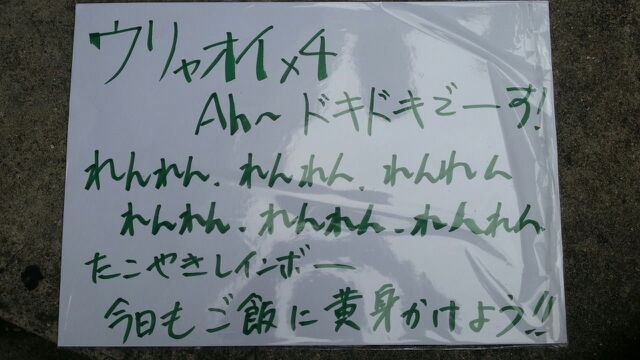 ウリャオイ×4
Ah〜 ドキドキでーす!
れんれん、れんれん、れんれん
れんれん、れんれん、れんれん
たこやきレインボー
今日もご飯に黄身かけよう!!